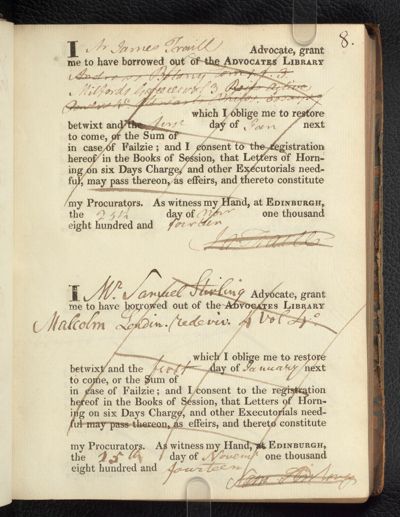 8.
I Mr James Traill Advocate, grant
me to have borrowed out of the ADVOCATES LIBRARY
Mitfords Greece vol 3
which I oblige me to restore
betwixt and the first day of Jan next
to come, or the Sum of
in case of Failzie; and I consent to the registration
hereof in the Books of Session, that Letters of Horn-
ing on six Days Charge, and other Executorials need-
ful, may pass thereon, as effeirs, and thereto constitute
my Procurators. As witness my Hand, at EDINBURGH,
the 25th day of Novr one thousand
eight hundred and fourteen
I Mr. Samuel Stirling Advocate, grant
me to have borrowed out of the ADVOCATES LIBRARY
Malcolm Londin. Rediviv. 4 vol 4o
which I oblige me to restore
betwixt and the first day of January next
to come, or the Sum of
in case of Failzie; and I consent to the registration
hereof in the Books of Session, that Letters of Horn-
ing on six Days Charge, and other Executorials need-
ful may pass thereon, as effeirs, and thereto constitute
my Procurators. As witness my Hand, at EDINBURGH,
the 25th day of Novemr one thousand
eight hundred and fourteen
Sam Stirling